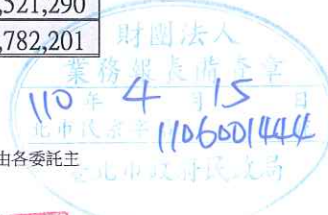 ,521,290
,782,201
財團法人
業務報表備查章
110年4月15日
北市民宗字1106001444
由各委託主
臺北市政府民政局